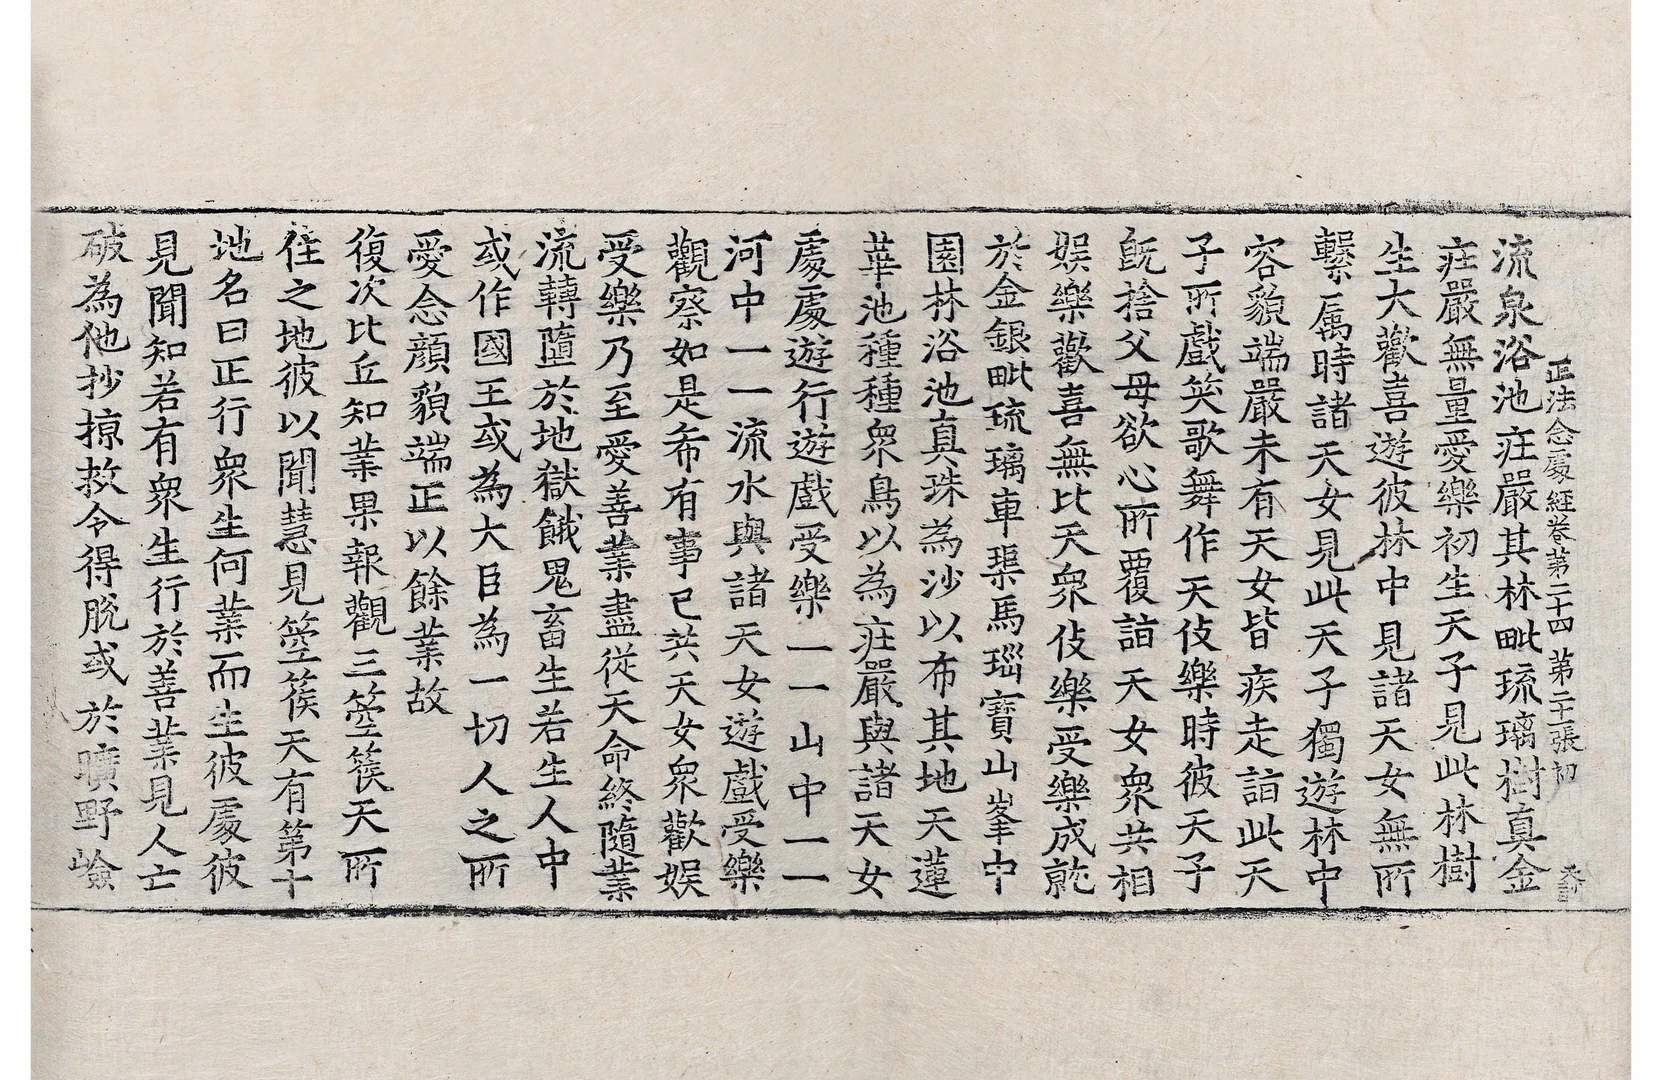 正法念處經卷第二十四　第二十張　初
流泉浴池庄嚴其林毗琉璃樹真金
庄嚴無量愛樂初生天子見此林樹
生大歡喜遊彼林中見諸天女無所
繫屬時諸天女見此天子獨遊林中
容貌端嚴未有天女皆疾走詣此天
子所戲笑歌舞作天伎樂時彼天子
旣捨父母欲心所覆詣天女衆共相
娛樂歡喜無比天衆伎樂受樂成就
於金銀毗琉璃車𤦲馬瑙寶山峯中
園林浴池真珠為沙以布其地天蓮
華池種種衆鳥以為庄嚴與諸天女
處處遊行遊戲受樂一一山中一一
河中一一流水與諸天女遊戲受樂
觀察如是希有事已共天女衆歡娛
受樂乃至愛善業盡從天命終隨業
流轉墮於地獄餓鬼畜生若生人中
或作國王或為大臣為一切人之所
愛念顔貌端正以餘業故
復次比丘知業果報觀三箜篌天所
住之地彼以聞慧見箜篌天有第十
地名曰正行衆生何業而生彼處彼
見聞知若有衆生行於善業見人亡
破為他抄掠救令得脫或於曠野嶮